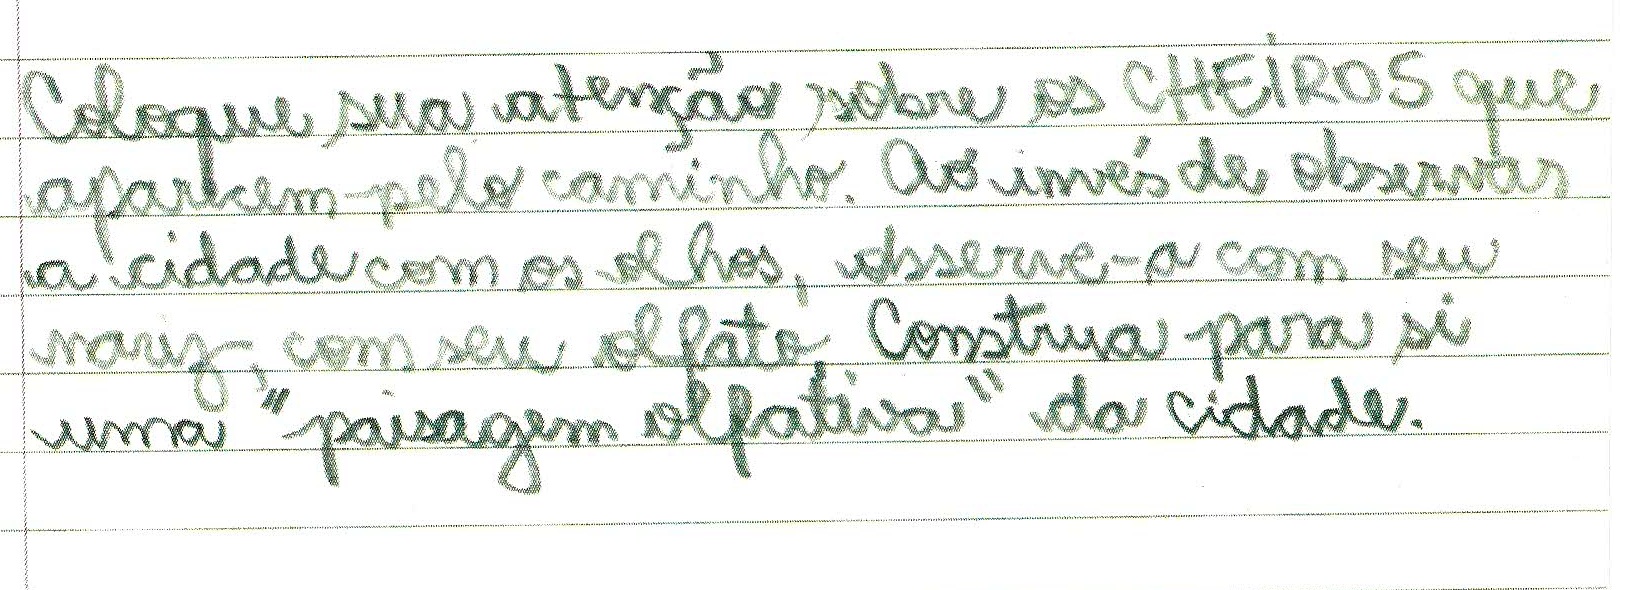 Coloque sua atenção sobre os CHEIROS que
aparecem pelo caminho. Ao invés de observar
a cidade com os olhos, observe-a com seu
nariz, com seu olfato. Construa para si
uma "paisagem olfativa" da cidade.